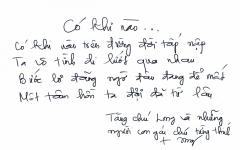 Có khi nào...
Có khi nào trên đường đời tấp nập
Ta vô tình đi lướt qua nhau
Bước lơ đãng ngỡ đâu đang để mất
Một tâm hồn ta đợi đã từ lâu
Tặng chú Long và những
người con gái chú từng thích